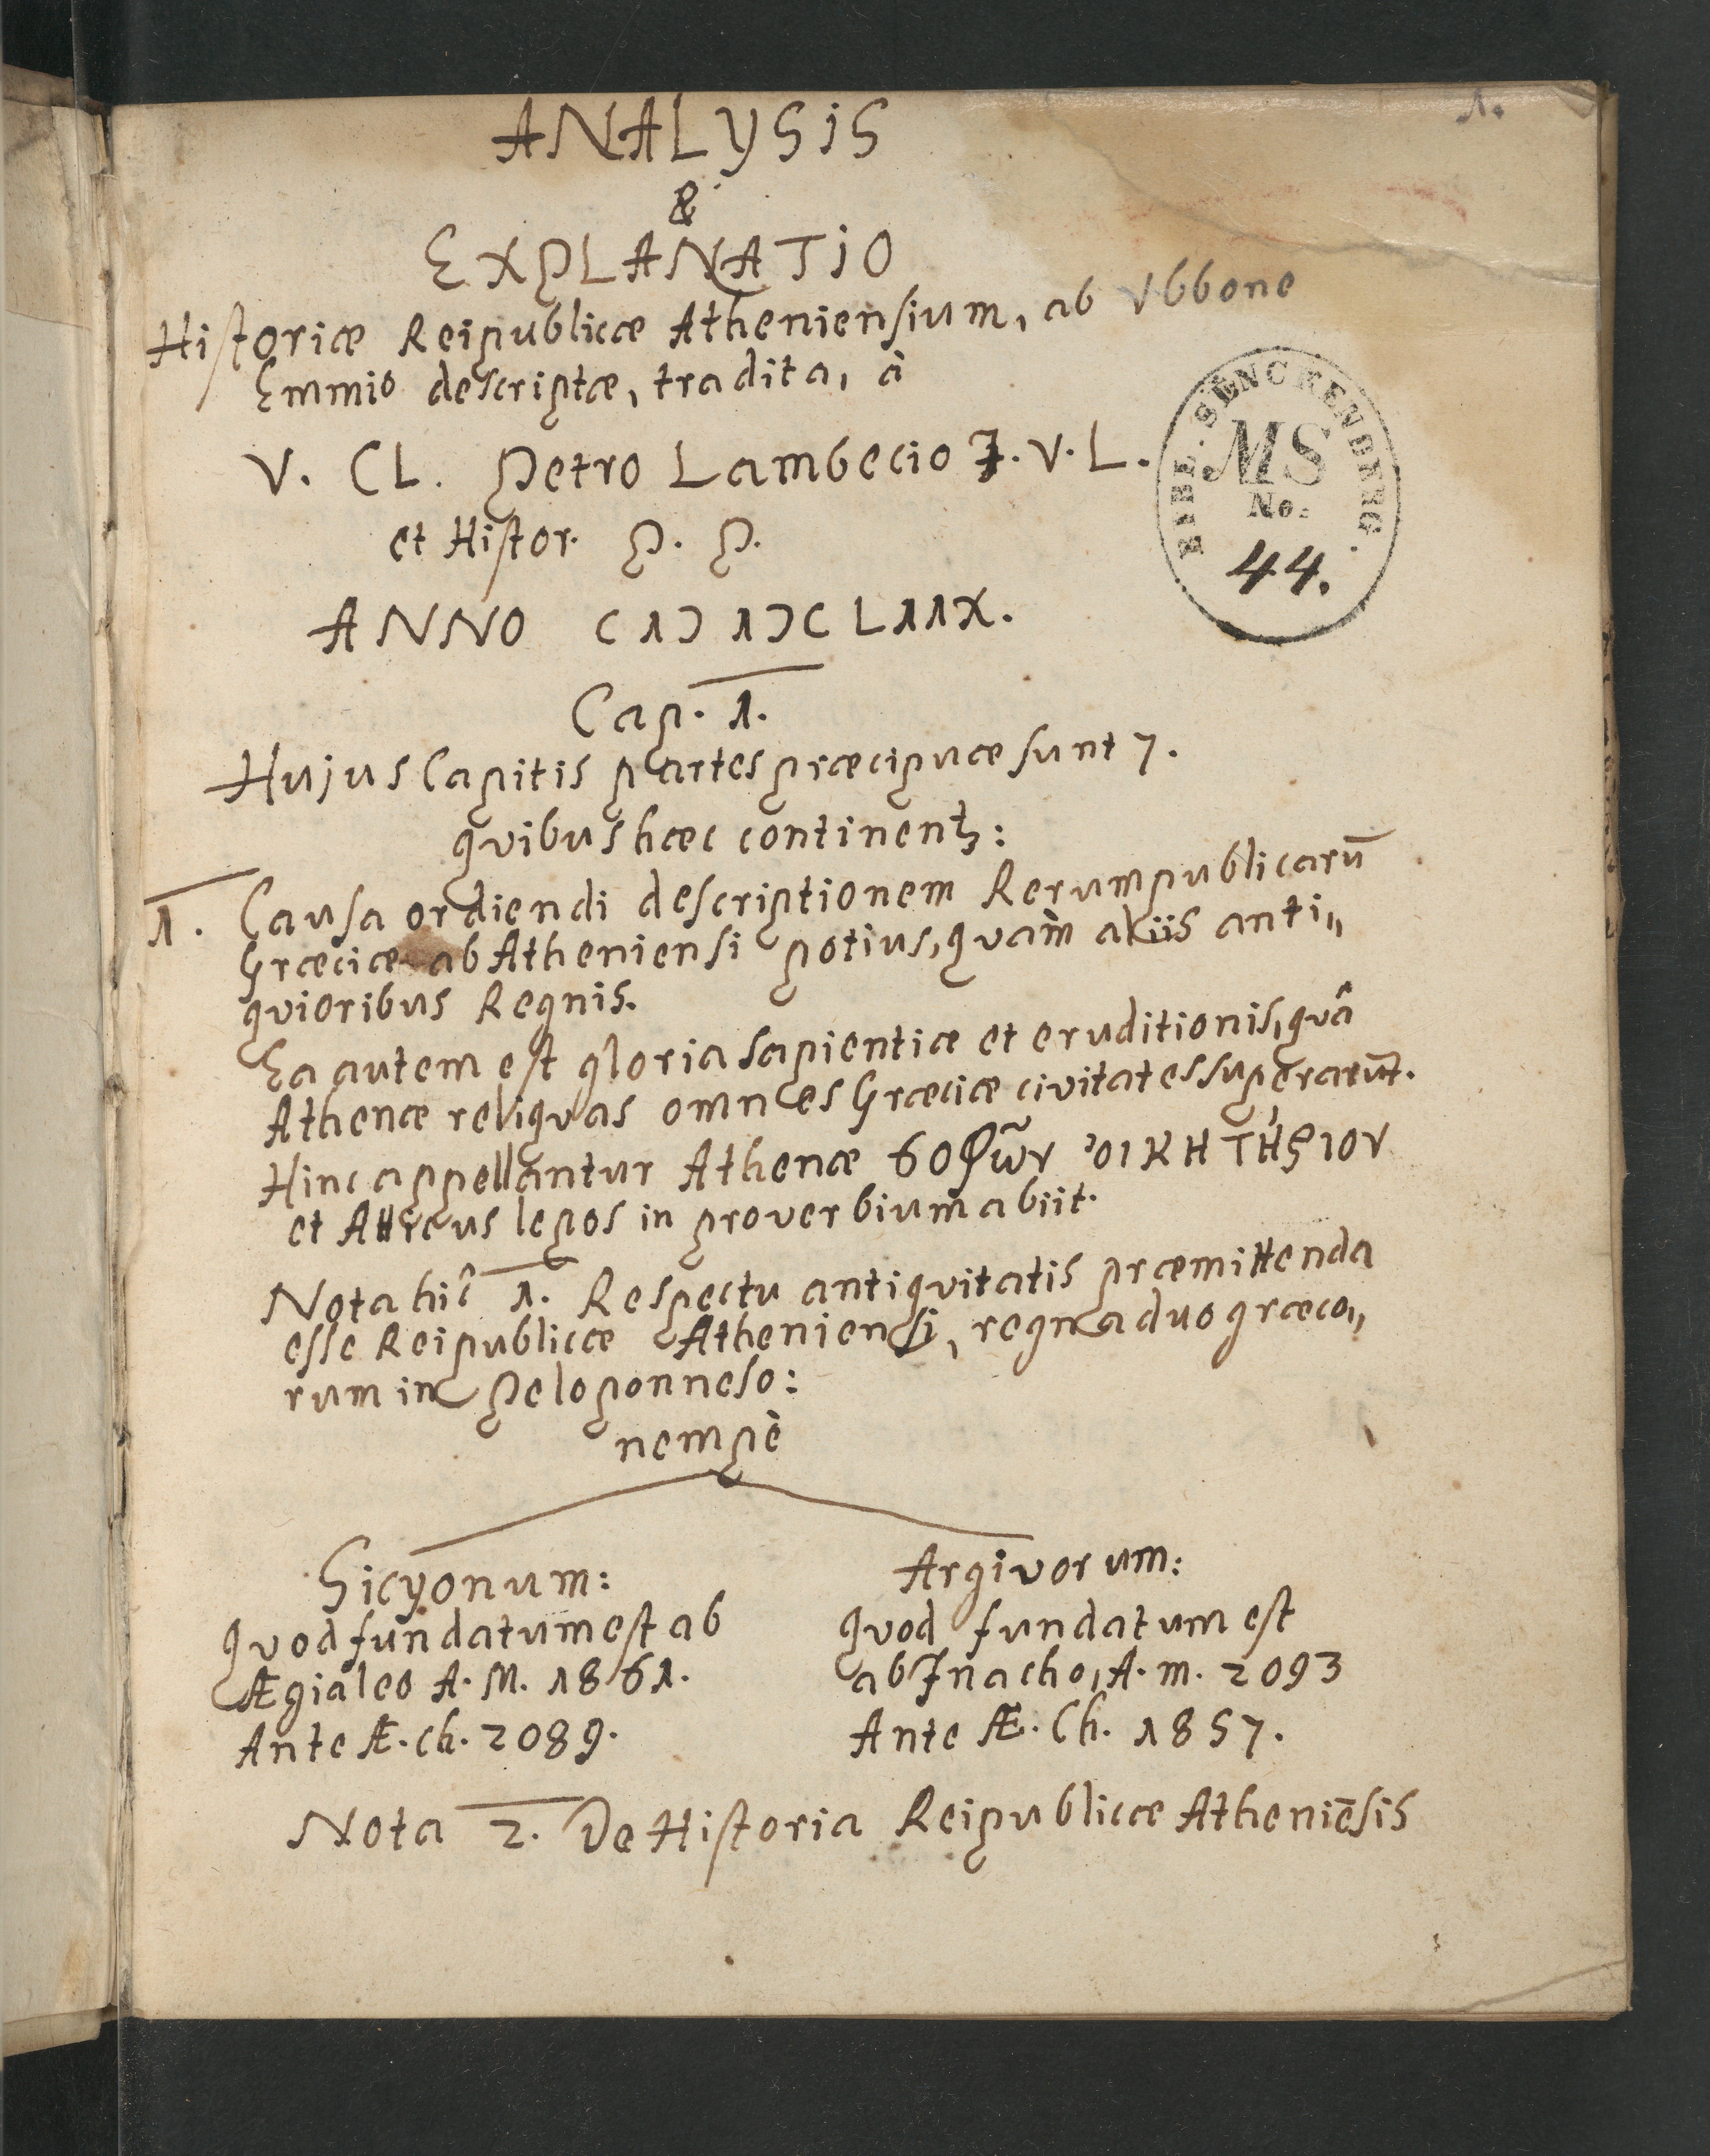 1.
ANALYSIS
&
EXPLANATIO
Historiæ Reipublicæ Atheniensium, ab Vbbone
Emmio descriptæ, tradita, à
V. CL. Petro Lambecio J. V. L.
et Histor. P. P.
BIBL. SENCKENBERG.
MS
No.
44.
ANNO CIƆ IƆC LIIX.
Cap. 1.
Hujus Capitis partes præcipuæ sunt 7.
qvibus hæc continentꝫ:
1. Causa ordiendi descriptionem Rerumpublicarū
Græciæ ab Atheniensi potius, qvam̀ aliis anti„
qvioribus Regnis.
Ea autem est gloria sapientiæ et eruditionis, qvâ
Athenæ reliqvas omnes Græciæ civitates superarunt.
Hinc appellantur Athenæ ϭοφῶν ὀικητήριον
et Atticus lepos in proverbium abiit.
Nota hic̀ 1. Respectu antiqvitatis præmittenda
esse Reipublicæ Atheniensi, regna duo græco„
rum in Peloponneso:
nempè
Sicyonum:
qvod fundatum est ab
Ægialeo A. M. 1861.
Ante Æ. Ch. 2089.
Argivorum:
qvod fundatum est
ab Inacho, A. m. 2093
Ante Æ. Ch. 1857.
Nota 2. De Historia Reipublicæ Atheniēsis